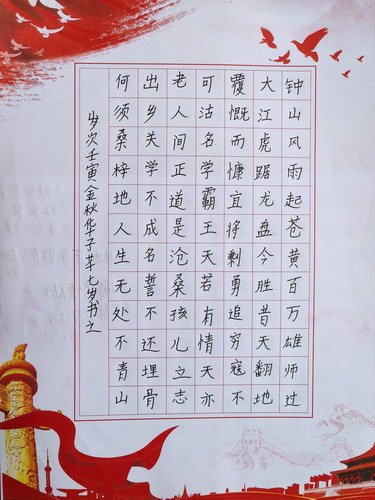 钟山风雨起苍黄百万雄师过
大江虎踞龙盘今胜昔天翻地
覆慨而慷宜将剩勇追穷寇不
可沽名学霸王天若有情天亦
老人间正道是沧桑孩儿立志
出乡关学不成名誓不还埋骨
何须桑梓地人生无处不青山
岁次壬寅金秋华子芊七岁书之